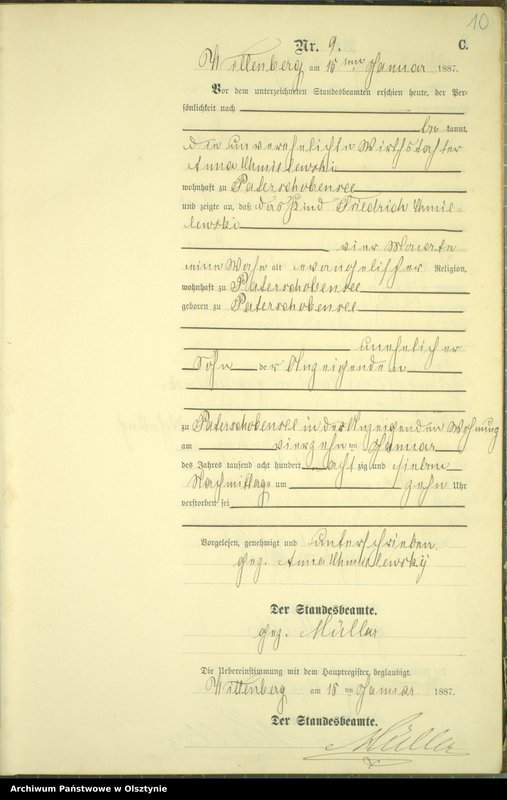 10
Nr. 9. C.
Willenberg am 15ten Januar 1887.
Vor dem unterzeichneten Standesbeamten erschien heute, der Per-
sönlichkeit nach
be kannt,
die unverehelichte Wirthstochter
Anna Chmielewski
wohnhaft zu Paterschobensee
und zeigte an, daß das Kind Friedrich Chmie-
lewski
vier Monate
eine Woche alt evangelischer Religion,
wohnhaft zu Paterschobensee
geboren zu Paterschobensee
unehelicher
Sohn der Anzeigenden
zu Paterschobensee in der Anzeigenden Wohnung
am vierzehnten Januar
des Jahres tausend acht hundert acht zig und sieben
Nachmittags um zehn Uhr
verstorben sei
Vorgelesen, genehmigt und unterschrieben
gez. Anna Chmielewsky
Der Standesbeamte.
gez. Müller
Die Uebereinstimmung mit dem Hauptregister, beglaubigt.
Willenberg am 15ten Januar 1887.
Der Standesbeamte.
Müller
Archiwum Państwowe w Olsztynie